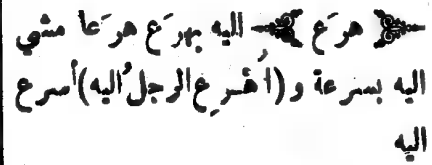 هرَع اليه يهرَع هرَعا مشي
اليه بسرعة و (اُهْرِع الرجل اليه) أسرع
اليه